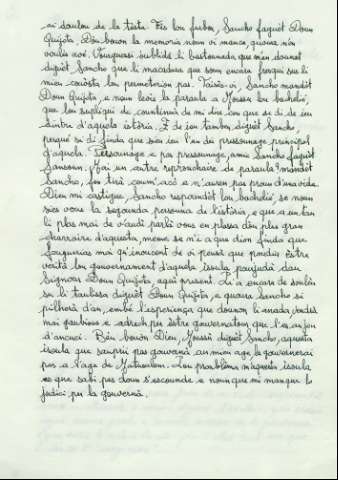 ai doulou de la testa. Fès lou fube, Sancho faguèt Doun
Quijota. Dóu bouon la memoria noun vi manca, quoura n'en
voulès avé. Vourguessi óublidà li bastounada que m'an dounat
diguèt Sancho que li macadura que soun encara fresqui su li
mieu couòsta lou permeterion pas. Taisès-vi, Sancho mandèt
Doun Quijota, e noun levès la paraula a Moussu lou bachelié,
que lou supliqui de countinuà de mi dire cen que si di de ieu
dintre d'aquela istòria. E de ieu tambèn, diguèt Sancho,
perqué si di finda que sieu ieu l'un dei persounage principal
d'aquela. Persounage e pa pressounage, amic Sancho faguèt
Sansoun. Vaqi un autre reprouchaire de paraula! mandèt
Sancho, se tira coum'acò e n'auren pas proun d'una vida.
Dieu mi castigue, Sancho respoundèt lou bachelié, se noun
sies vous la segounda persouna de l'istòria, e que n'en a un
li plas mai de v'audì parlà vous en plassa dóu plus gran
charraire d'aquesta, meme se n'i a que dion finda que
fougurias mai qu'inoucent de vi pensà que poudia èstre
verità lou gouvernament d'aquela issoula proumessa dau
Signour Doun Quijota, aquì present. Li a encara de soulèu
su li taulissa diguèt Doun Quijota, e quoura Sancho si
pilherà d'an, embé l'esperiença que dounon li anada, serà
mai gaubious e adrech per èstre gouvernatour que l'es au jou
d'ancuei. Bèn bouòn Dieu, Moussu diguèt Sancho, aquesta
isoula que sauprii pas gouvernà au mieu age la gouvernerai
pas a l'age de Matusalem. Lou proublèma m'aquesta issoula
es que sabi pas doun s'escounde e noun que mi manque lu
judici per la gouvernà.